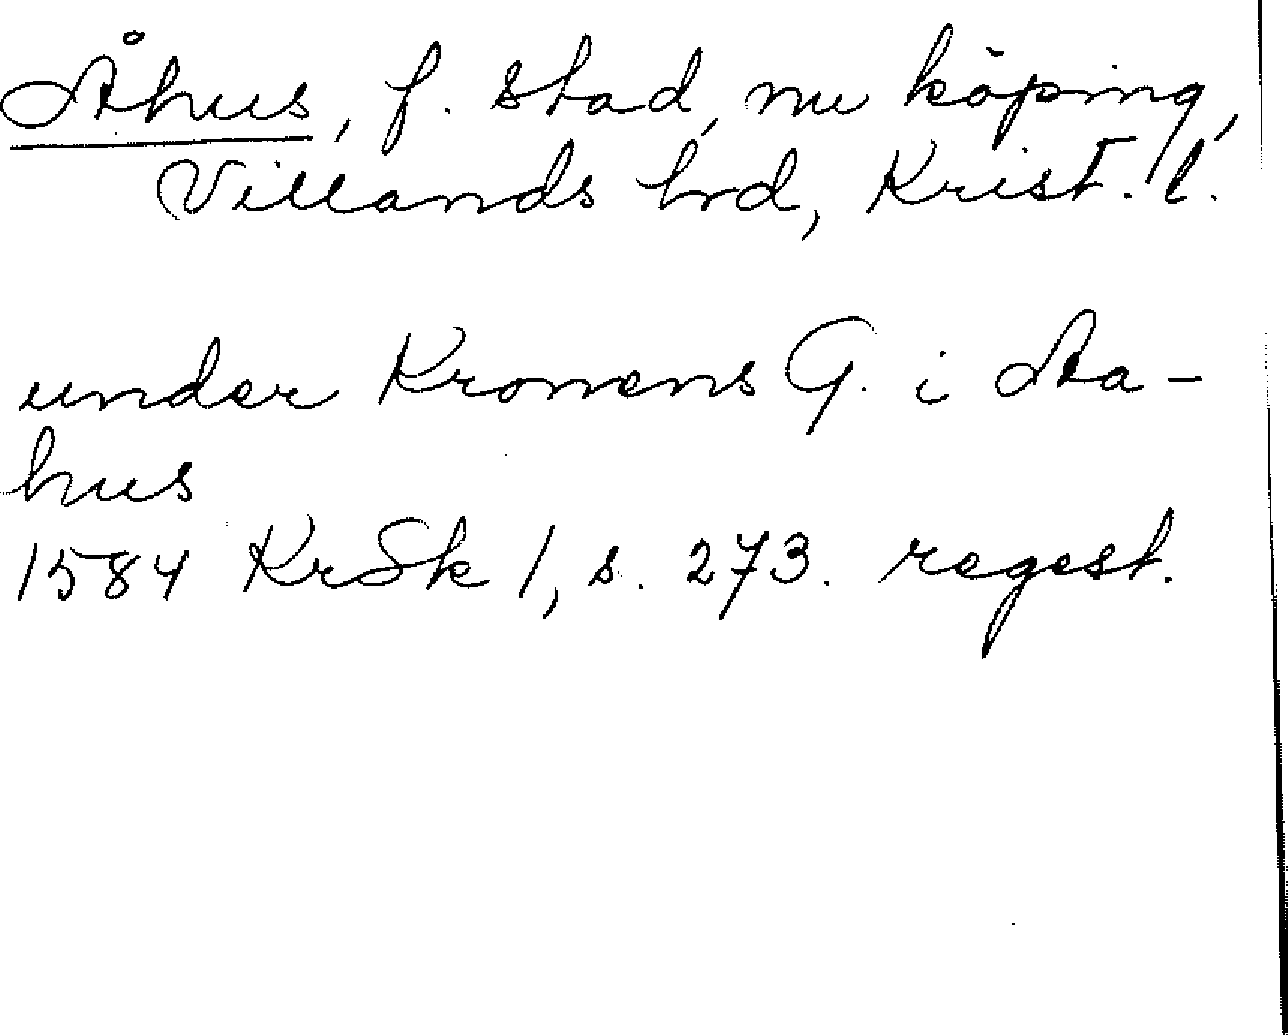 Åhus, f. stad, nu köping,
Villands hrd, Krist. l.
under Kronens G. i Aa-
hus
1584 KrSk 1, s. 273. regest.